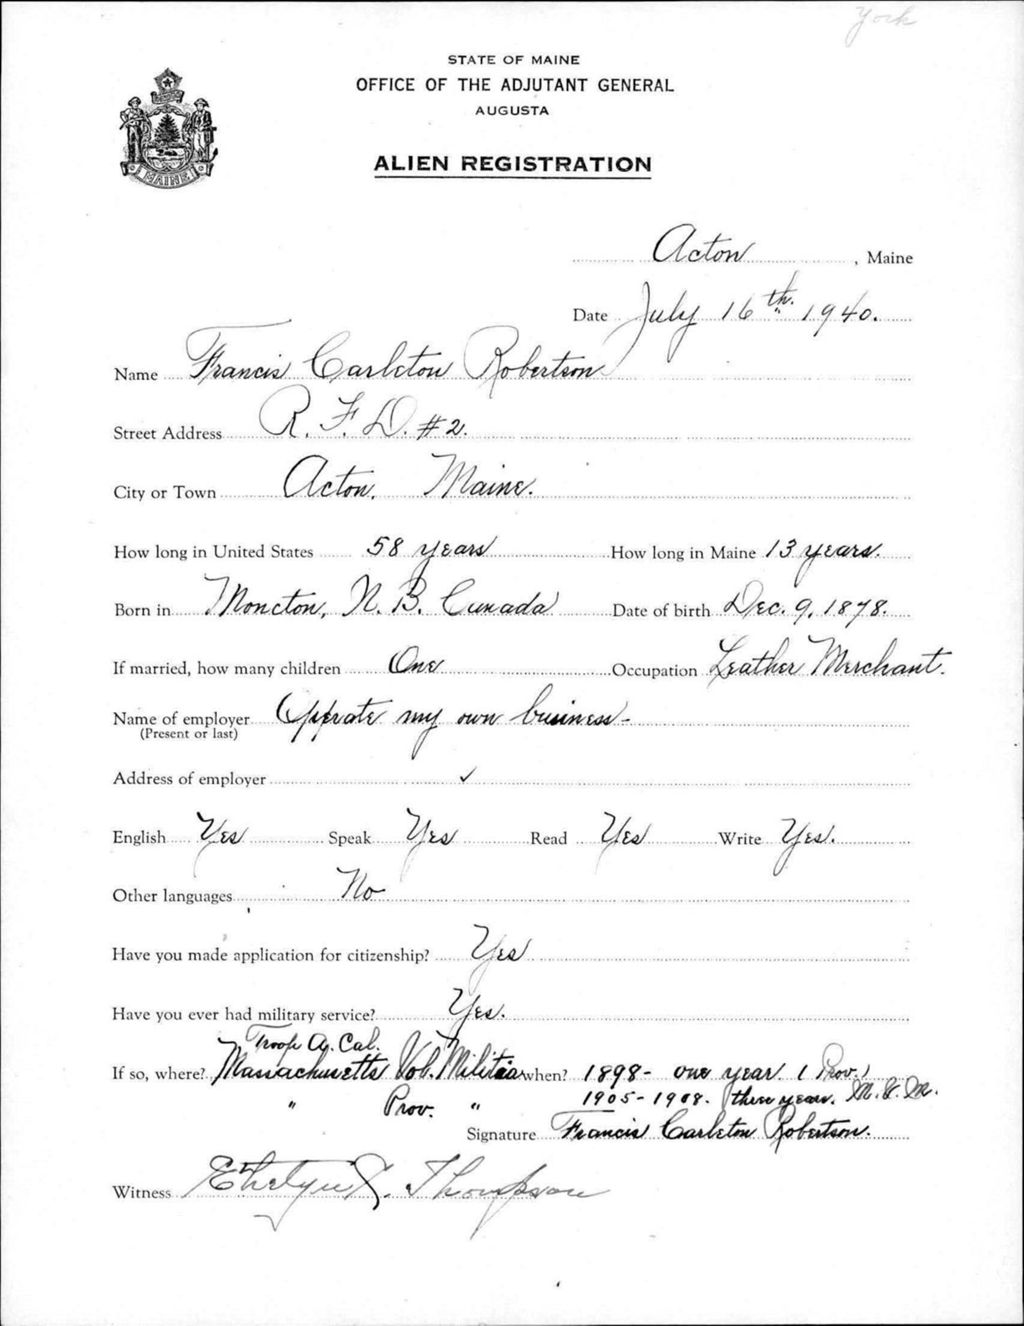 York
STATE OF MAINE
OFFICE OF THE ADJUTANT GENERAL
AUGUSTA
ALIEN REGISTRATION
MAINE
Acton, Maine
Date July 16th. 1940.
Name Francis Carleton Robertson
Street Address R. F. D. #2.
City or Town Acton, Maine.
How long in United States 58 years How long in Maine 13 years.
Born in Moncton, N. B. Canada Date of birth Dec. 9, 1878.
If married, how many children One Occupation Leather Merchant.
Name of employer Operate my own business-
(Present or last)
Address of employer ✓
English Yes Speak Yes Read Yes Write Yes.
Other languages No
Have you made application for citizenship? Yes
Have you ever had military service? Yes.
Troop A. Cal.
If so, where? Massachusetts Vol. Militia when? 1898- one year. (Prov.)
" Prov. " 1905-1908. three years. M. V. M.
Signature Francis Carleton Robertson.
Witness Thompson